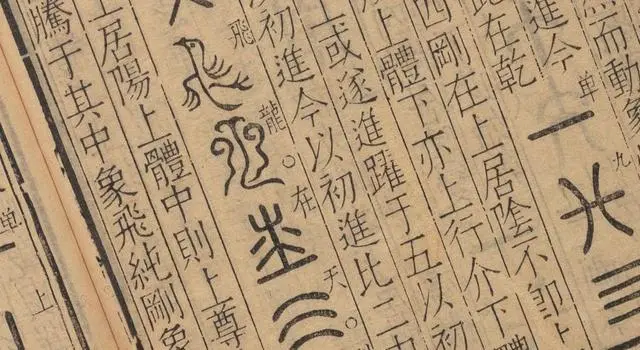 然而動象
進今
单
九
此在乾
四剛在上居陰不卽上
上體下亦上行介下體
上或遂進躍于五以初
以初進今以初進比二中
飛龍。在天。
上居陽上體中則上尊
騰于其中象飛純剛象
单上